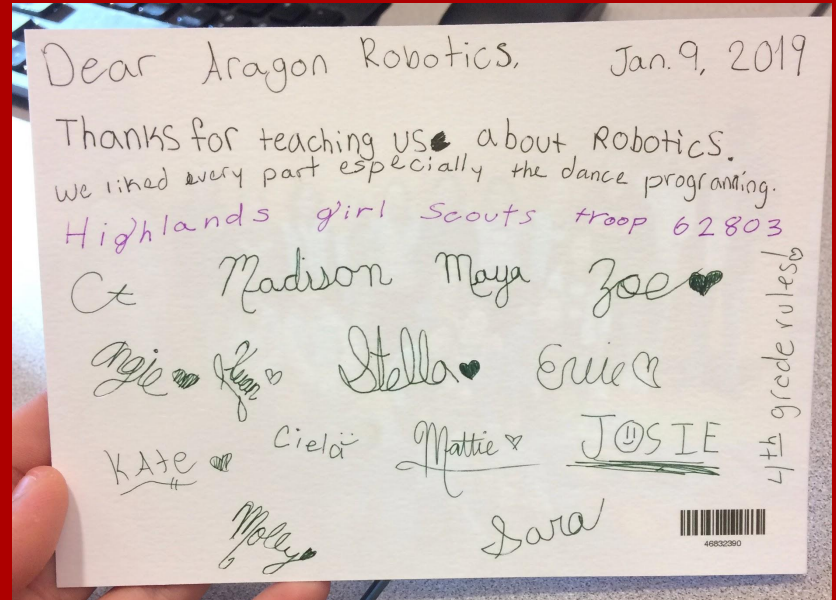 Dear Aragon Robotics, Jan. 9, 2019
Thanks for teaching us about Robotics.
we liked every part especially the dance programing.
Highlands girl Scouts troop 62803
Madison Maya Zoe
Angie Stella
KAte Ciela Mattie JOSIE
Molly Sara
4th grade rules!
46832390